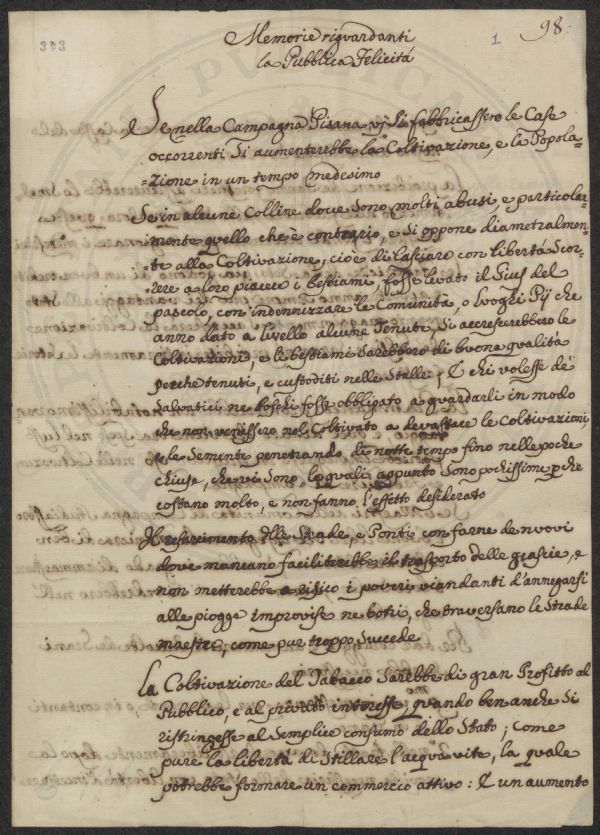 333
1
98.
Memorie riguardanti
la Pubblica Felicità
Se nella Campagna Pisana vi si fabbricassero le Case
occorrenti si aumenterebbe la Coltivazione, e la Popola-
-zione in un tempo medesimo
Se in alcune Colline dove sono molti abusi, e particolar-
mente quello che è contrario, e si oppone diametralmen-
-te alla Coltivazione, cioè di lasciare con libertà scor-
rere a loro piacere i bestiami, fosse levato il Gius del
pascolo, con indennizzare le Comunità, o luoghi Pij che
anno dato a livello alcune Tenute, si accrescerebbero le
Coltivazioni, e le bestiami sarebbero di buona qualità
perche tenuti, e custoditi nelle Stalle; E chi volesse de'
salvatici ne boschi fosse obbligato a guardarli in modo
che non venissero nel Coltivato a devastare le Coltivazioni
e le Semente penetrando di notte tempo fino nelle poche
chiuse, che vi sono, le quali appunto sono pochissime pche
costano molto, e non fanno l'effetto desiderato
Il resarcimento delle Strade, e Ponti con farne de nuovi
dove mancano faciliterebbe il trasporto delle grascie, e
non metterebbe a risico i poveri viandanti d'annegarsi
alle piogge improvise ne botri, che traversano le Strade
maestre, come pur troppo succede
La Coltivazione del Tabacco sarebbe di gran Profitto al
Pubblico, e al privato interesse, quando ben anche si
ristringesse al semplice consumo dello Stato; come
pure la libertà di stillare l'acqua vite, la quale
potrebbe formare un commercio attivo: E un aumento